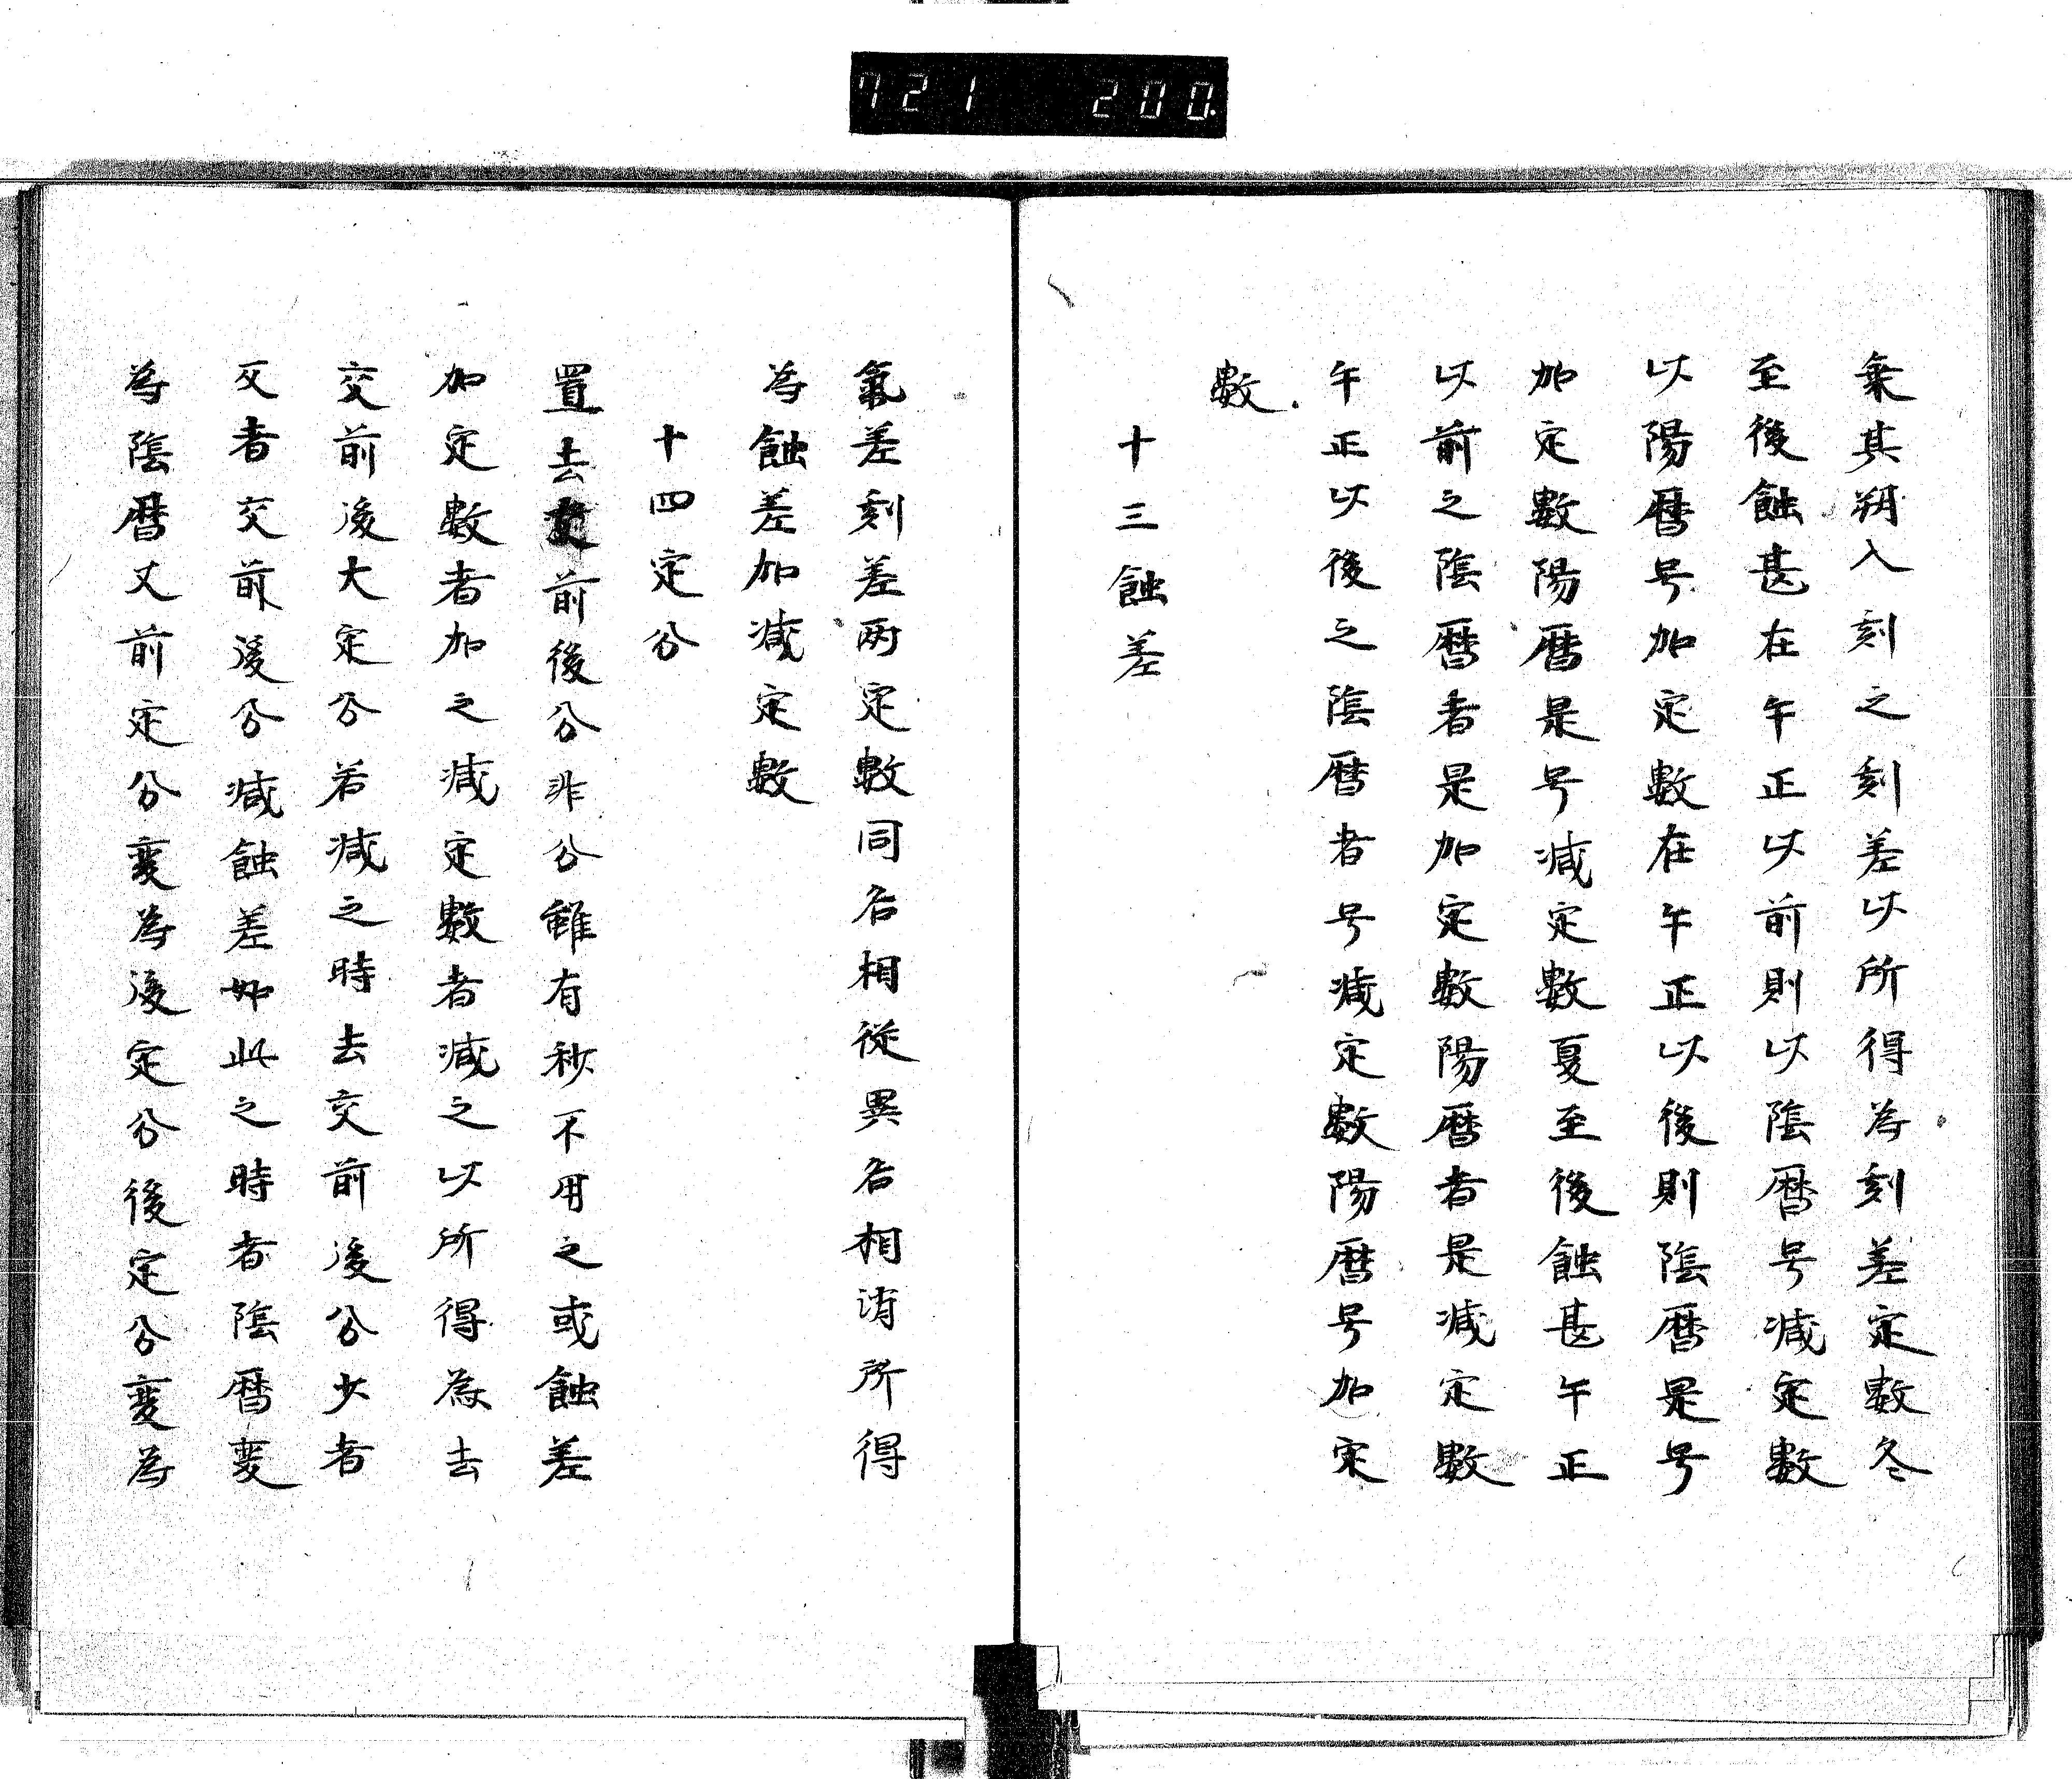 721 200.
乗其朔入刻之刻差以所得為刻差定數冬
至後蝕甚在午正以前則以陰暦号減定數
以陽暦号加定數在午正以後則陰暦是号
加定數陽暦是号減定數夏至後蝕甚午正
以前之陰暦者是加定數陽暦者是減定數
午正以後之陰暦者号减定數陽暦号加定
數
十三蝕差
氣差刻差两定數同名相從異名相消所得
為蝕差加减定數
十四定分
置去交前後分非分雖有秒不用之或蝕差
加定數者加之减定數者减之以所得為去
交前後大定分若减之時去交前後分少者
反者交前後分减蝕差如此之時者陰暦变
為陰暦又前定分变為後定分後定分变為